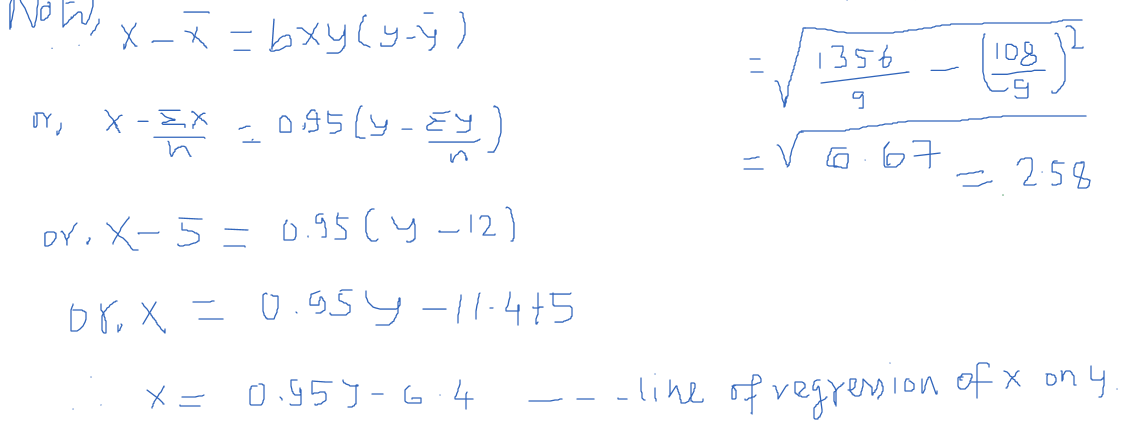 Now, x - x̄ = bxy(y-ȳ)
or, x - Σx/n = 0.95(y - Σy/n)
or. x - 5 = 0.95(y - 12)
or. x = 0.95y - 11.4+5
x = 0.95y - 6.4 --- line of regression of x on y.
= √(1356/9 - (108/9)²)
= √6.67 = 2.58